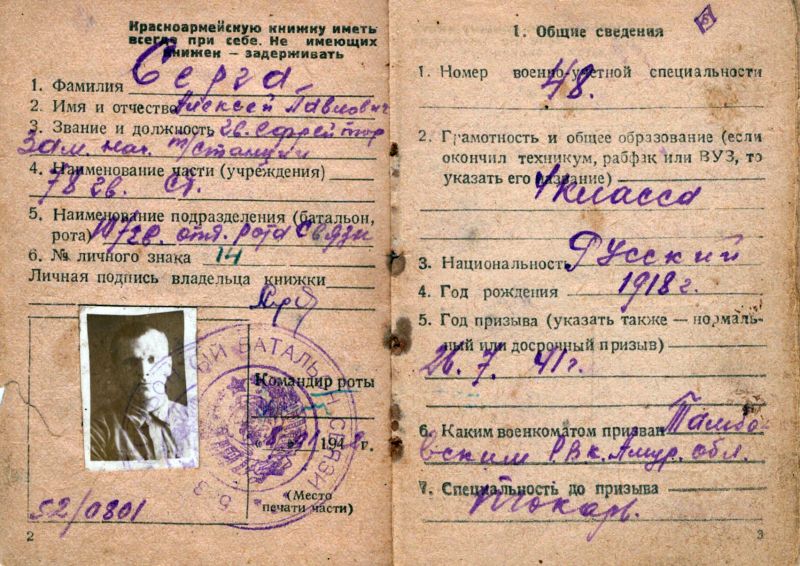 Красноармейскую книжку иметь
всегда при себе. Не имеющих
книжек — задерживать
1. Фамилия Серга
2. Имя и отчество Алексей Павлович
3. Звание и должность гв. Ефрейтор
Зам. нач. т/станции
4. Наименование части (учреждения)
78 гв. сп.
5. Наименование подразделения (батальон,
рота) отд. рота связи
6. № личного знака 14
Личная подпись владельца книжки
Командир роты
194 г.
(Место
печати части)
БАТАЛЬОН СВЯЗИ
52/0801
2
5
1. Общие сведения
1. Номер военно-учетной специальности
48.
2. Грамотность и общее образование (если
окончил техникум, рабфак или ВУЗ, то
указать его название)
4 класса
3. Национальность Русский
4. Год рождения 1918 г.
5. Год призыва (указать также — нормаль-
ный или досрочный призыв)
26. 7. 41 г.
6. Каким военкоматом призван Тамбо
вским РВК. Амур. обл.
7. Специальность до призыва
Токарь.
3